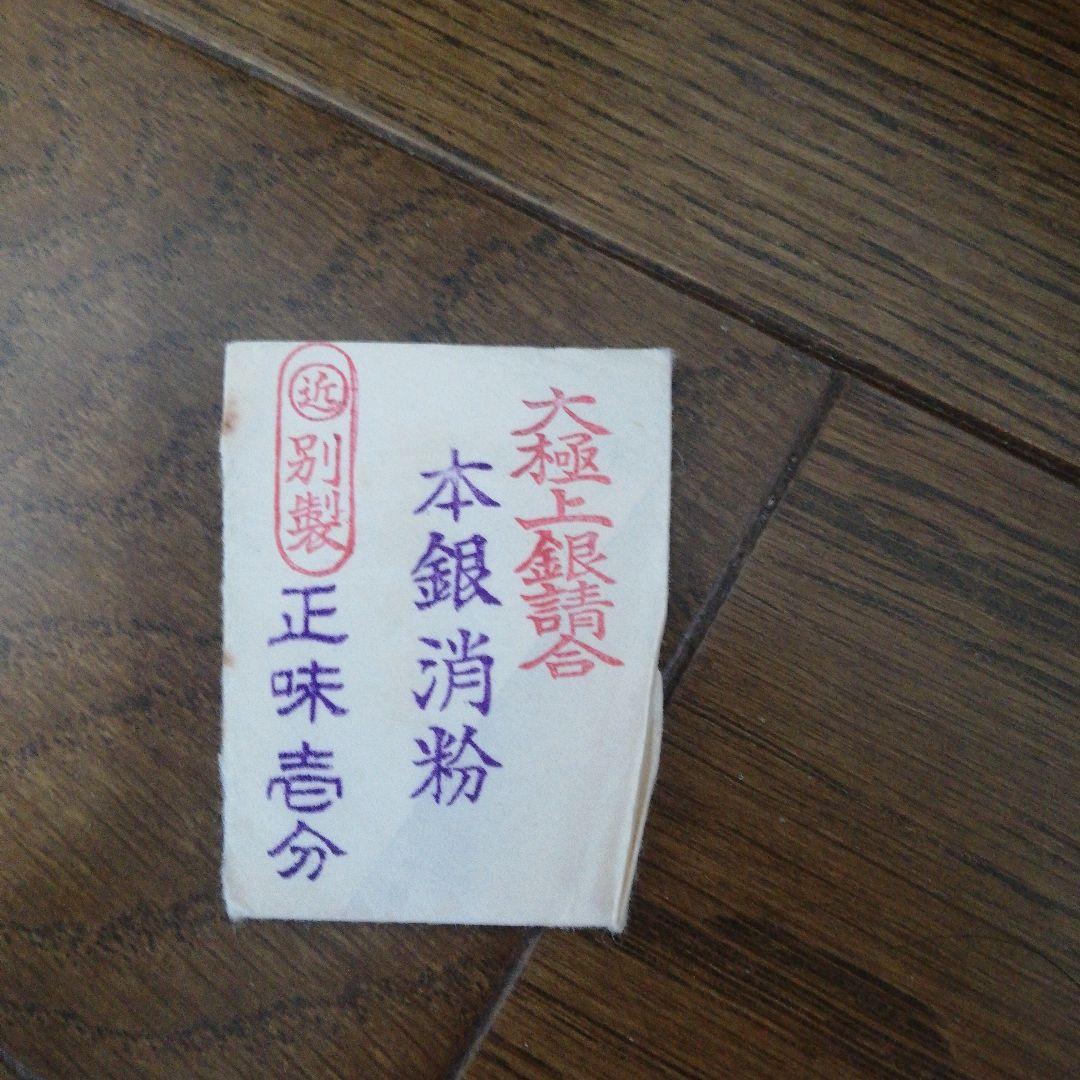 大極上銀請合
本銀消粉
近別製
正味壱分